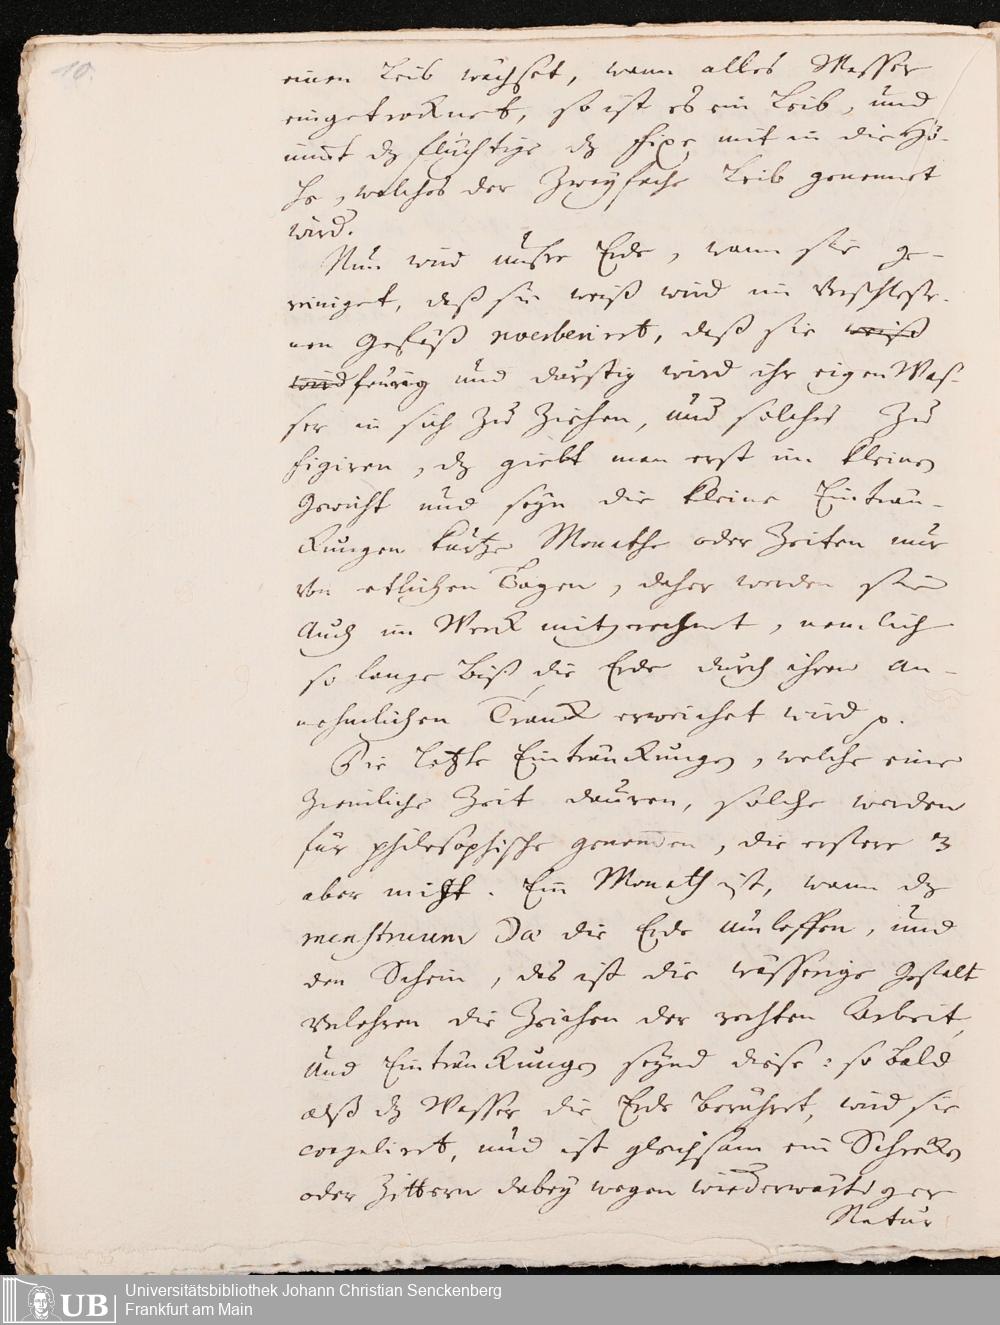 10.
einen Leib wächset, wann alles Wasser
eingetrocknet, so ist es ein Leib, und
nimt dz flüchtige dz fixe mit in die Hö-
he, welches der Zweyfache Leib genennet
wird.
Nun wird unsre Erde, wann sie ge-
reiniget, daß sie weiß wird im verschloße-
nen Gefäß reverberirt, daß sie weiß
wird feurig und durstig wird ihr eigen Was-
ser in sich zu Ziehen, und solches zu
figiren, dz giebt man erst im kleinen
Gewicht und seyn die kleine Einträn-
kungen kurtze Monathe oder Zeiten nur
von etlichen Tagen, daher werden sie
Auch im Werck mitgerechnet, nemlich
so lange biß die Erde durch ihren an-
nehmlichen Tranck erweichet wird p.
Die letzte Einträuckungen, welche eine
Ziemliche Zeit dauren, solche werden
für philosophische genennen, die erstere
aber nicht. Ein Monath ist, wann dz
menstruum die Erde umloffen, und
den Schein, das ist die wässerige Gestalt
verlohren die Zeichen der rechten Arbeit,
und Einträuckungen seynd diese: so bald
alß dz Wasser die Erde berühret, wird sie
coagulirt, und ist gleichsam ein Schrecken
oder Zittern dabey wegen wiederwärtiger
Natur
Universitätsbibliothek Johann Christian Senckenberg
Frankfurt am Main
UB